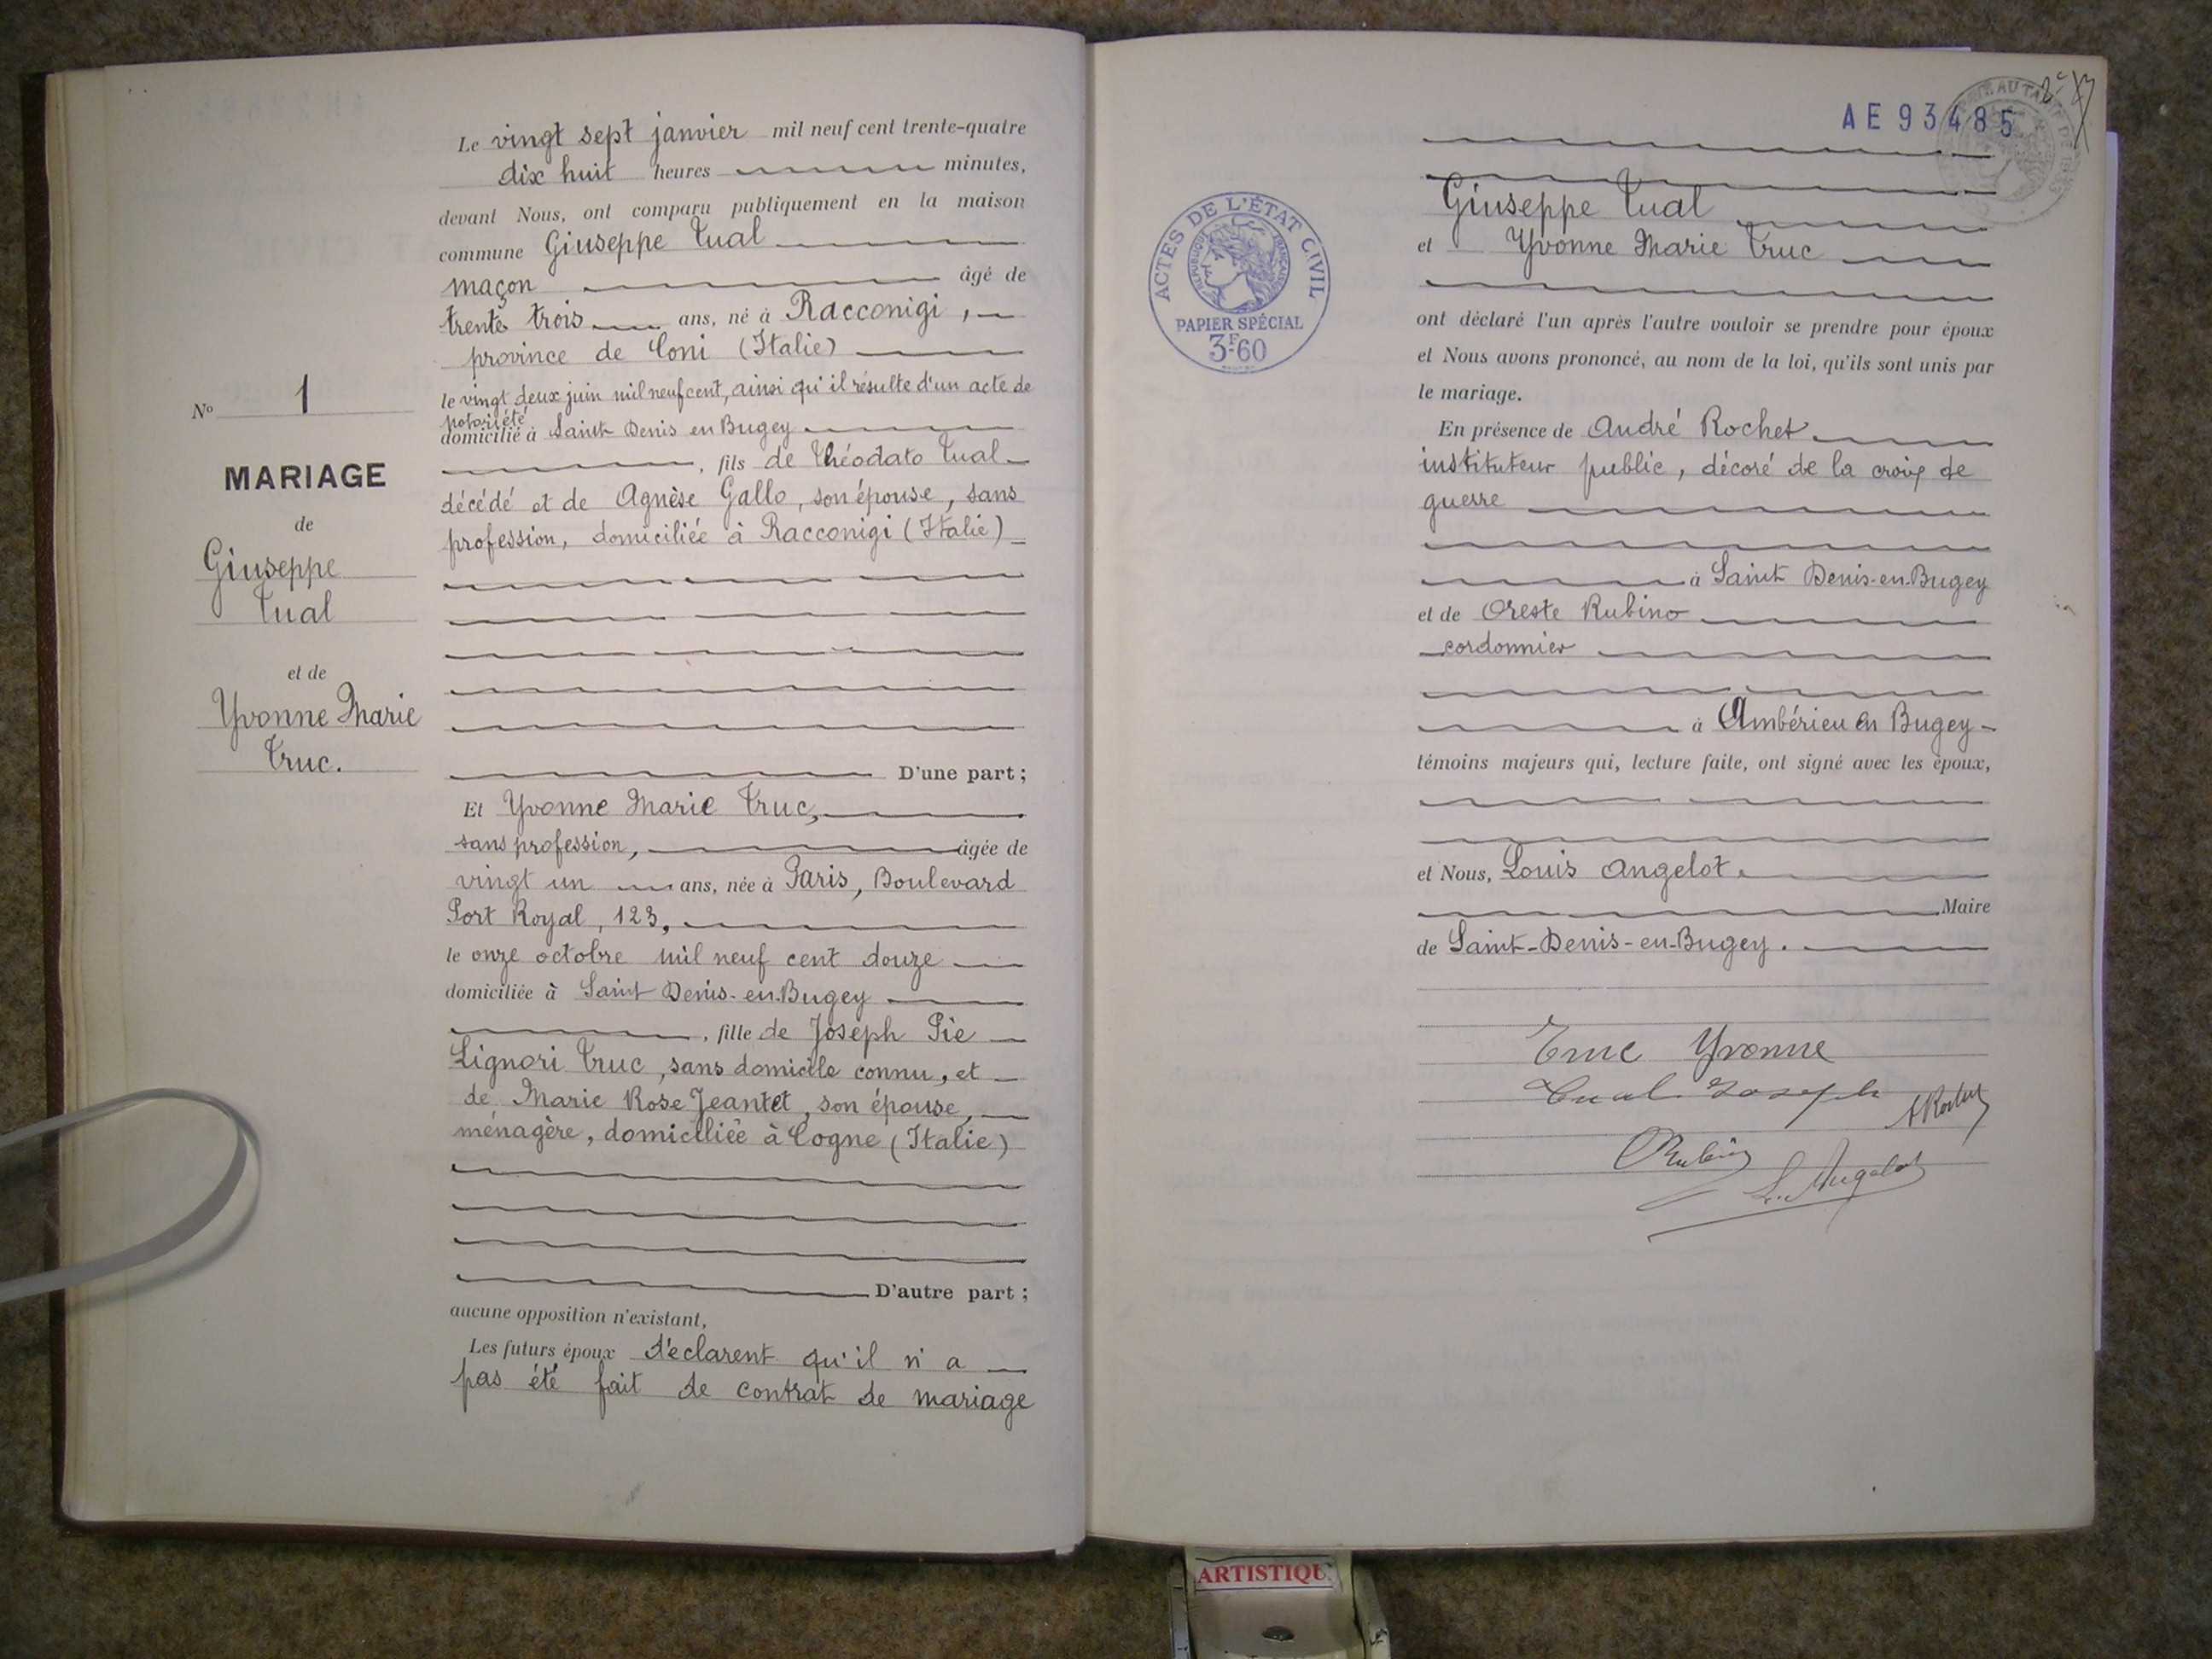 Le vingt sept janvier mil neuf cent trente-quatre
dix huit heures minutes,
devant Nous, ont comparu publiquement en la maison
commune Giuseppe Tual
maçon âgé de
trente trois ans, né à Racconigi,
province de Coni (Italie)
le vingt deux juin mil neuf cent, ainsi qu'il résulte d'un acte de
notoriété
domicilié à Saint-Denis en Bugey
, fils de Théodato Tual
décédé et de Agnèse Gallo, son épouse, sans
profession, domiciliée à Racconigi (Italie)
No 1
MARIAGE
de
Giuseppe
Tual
et de
Yvonne Marie
Truc.
D'une part;
Et Yvonne Marie Truc,
sans profession, âgée de
vingt un ans, née à Paris, Boulevard
Port Royal, 123,
le onze octobre mil neuf cent douze
domiciliée à Saint Denis-en-Bugey
, fille de Joseph Pie
Lignori Truc, sans domicile connu, et
de Marie Rose Jeantet, son épouse,
ménagère, domiciliée à Cogne (Italie)
D'autre part;
aucune opposition n'existant,
Les futurs époux déclarent qu'il n'a
pas été fait de contrat de mariage
AE93485
ACTES DE L'ÉTAT CIVIL
RÉPUBLIQUE FRANÇAISE
PAPIER SPÉCIAL
3F60
Giuseppe Tual
et Yvonne Marie Truc
ont déclaré l'un après l'autre vouloir se prendre pour époux
et Nous avons prononcé, au nom de la loi, qu'ils sont unis par
le mariage.
En présence de André Rochet
instituteur public, décoré de la croix de
guerre
à Saint Denis-en-Bugey
et de Oreste Rubino
cordonnier
à Ambérieu en Bugey
témoins majeurs qui, lecture faite, ont signé avec les époux,
et Nous, Louis Angelot
Maire
de Saint-Denis-en-Bugey.
Truc Yvonne
Tual Joseph
ARochet
ORubino
L. Angelot
ARTISTIQU